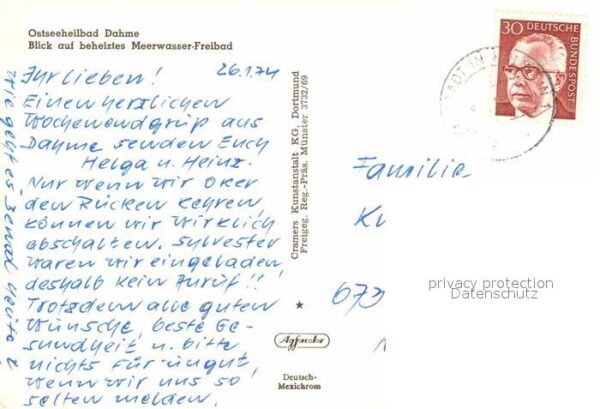 Ostseeheilbad Dahme
Blick auf beheiztes Meerwasser-Freibad
26.1.74
Ihr Lieben!
Einen herzlichen
Wochenendgruß aus
Dahme senden Euch
Helga u. Heinz.
Nur wenn wir Oker
den Rücken kehren,
können wir wirklich
abschalten. Sylvester
waren wir eingeladen
deshalb kein Zuruf!!
Trotzdem alle guten
Wünsche, beste Ge-
sundheit u. bitte
nichts für ungut,
wenn wir uns so
selten melden.
Wie geht es
Cramers Kunstanstalt KG. Dortmund
Freigeg. Reg.-Präs. Münster 3732/69
Agfacolor
Deutsch-
Mexichrom
30
DEUTSCHE
BUNDESPOST
Familie
673
privacy protection
Datenschutz